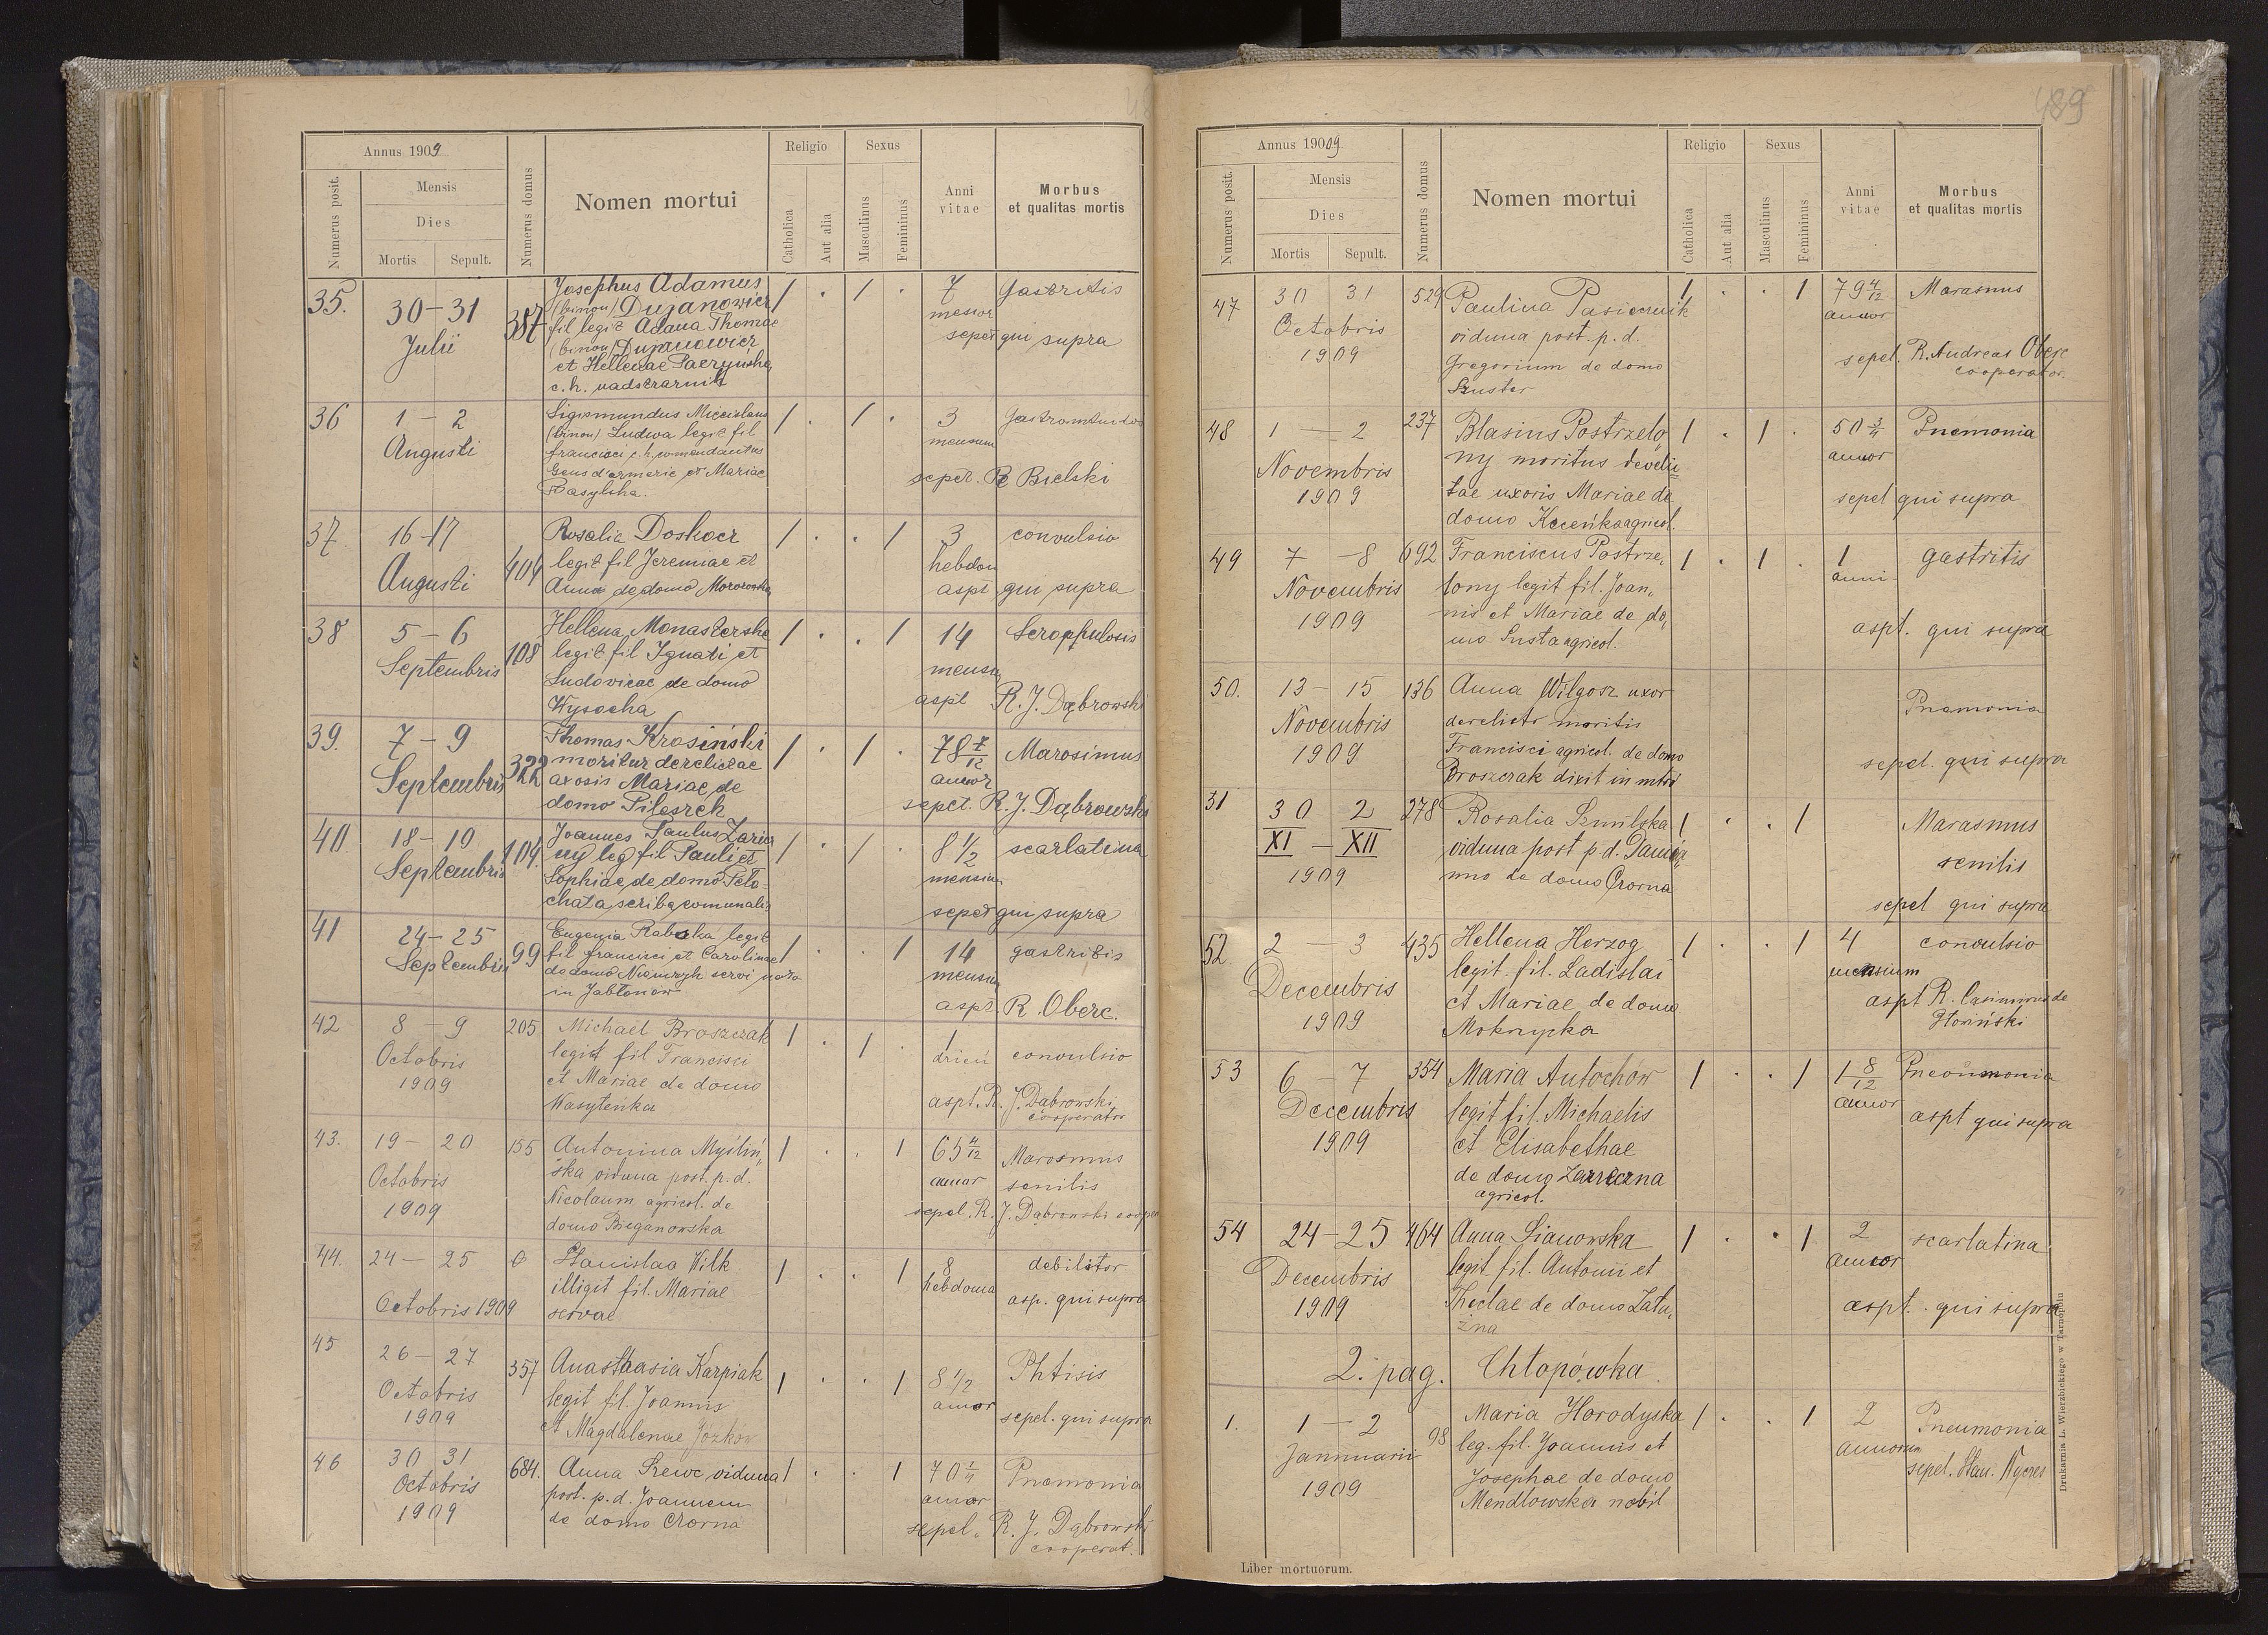 Annus 1909
Numerus posit.
Mensis
Dies
Mortis
Sepult.
Numerus domus
Nomen mortui
Religio
Catholica
Aut alia
Sexus
Masculinus
Femininus
Anni vitae
Morbus
et qualitas mortis
35. 30-31 Julii 387
Josephus Adamus
(binom) Dujanowicz
fil legit Adama Thomae
(binom) Dujanowicz
et Hellenae
c.h.
7
sepel qui supra
Gastritis
36 1 - 2 Augusti
Sigismundus Miecislaus
(binom) Ludwa legit fil
francisci c.h. comendantus
Gens d'armerie et Mariae
3
mensum
sepel. R Bielski
37. 16-17 Augusti 404
Rosalia Doskocz
legit fil Jeremiae et
Anna de domo
3
hebdom
convulsio
aspt qui supra
38 5-6 Septembris 108
Hellena Monasterska
legit fil Ignati et
Ludovicae de domo
Wysocka
14
mensu
aspt R. J. Dąbrowski
39. 7-9 Septembris 322
Thomas Krosiński
moritur derelictae
axosis Mariae de
domo Pileszek
78 7/12
annor
Marosimus
sepet. R. J. Dąbrowski
40. 18-19 Septembris 104.
Joannes Paulus
ny leg fil Pauli et
Sophiae de domo Peto-
chata scriba comunalis
8 1/2
mensium
scarlatina
sepet qui supra
41 24-25 Septembris 99
Eugenia legit
fil francisci et Carolinae
de domo servi
in Jabłonów
14
mensiu
gastritis
aspt. R. Oberc.
42 8 - 9 Octobris 1909 205
Michael Broszczak
legit fil Francisci
et Mariae de domo
Wasyteńka
1
convulsio
aspt. R. J. Dąbrowski
cooperator
43. 19 - 20 Octobris 1909 155
Antonina Myśliń,
ska vidua post. p. d.
Nicolaum agricol. de
domo Bieganowska
65 4/12
annor
Marosmus
senilis
sepel. R. J. Dąbrowski
44. 24 - 25 Octobris 1909 0
Stanislaa Wilk
illigit fil. Mariae
servae
8
hebdoma
debilitor
asp. qui supra
45 26 - 27 Octobris 1909 357
Anasthasia Karpiak
legit fil. Joannis
et Magdalenae Józkow
8 1/2
annor
Phtisis
sepel. qui supra
46 30 31 Octobris 1909 684.
Anna Szewc vidua
post. p. d. Joannem
de domo Czorna
70 1/4
annor
Pnemonia
sepel. R. J. Dąbrowski
cooperat.
489
Annus 1909
Numerus posit.
Mensis
Dies
Mortis
Sepult.
Numerus domus
Nomen mortui
Religio
Catholica
Aut alia
Sexus
Masculinus
Femininus
Anni vitae
Morbus
et qualitas mortis
47 30 31 Octobris 1909 529
Paulina Pasicznik
vidua post. p. d.
Gregorium de domo
Szuster
79 4/12
annor
Marasmus
sepel. R. Andreas Oberc
cooperator.
48 1 - 2 Novembris 1909 237
Blasius Postrzelo,
ny moritus
tae uxoris Mariae de
domo agricol.
50 3/4
annor
Pnemonia
sepel qui supra
49 7 - 8 Novembris 1909 692
Franciscus Postrze,
lony legit fil. Joan,
nis et Mariae de do,
mo Susta agricol.
1
anni
gastritis
aspt. qui supra
50. 13 - 15 Novembris 1909 136
Anna Wilgosz uxor
derelictr moritis
Francisci agricol. de domo
Broszczak
Pnemonia
sepel. qui supra
51 30 XI - 2 XII 1909 278
Rosalia Szmilska
vidua post p. d.
mo de domo Czorna
Marasmus
senilis
sepel qui supra
52. 2 - 3 Decembris 1909 435
Hellena Herzog
legit. fil. Ladislai
et Mariae de domo
Mokrycka
4
mensium
convulsio
aspt R. Casimirus de
53 6 - 7 Decembris 1909 354
Maria Antochow
legit fil. Michaelis
et Elisabethae
de domo
agricol.
1 8/12
annor
Pneoumonia
aspt qui supra
54 24-25 Decembris 1909 464
Anna Sianowska
legit. fil. Antonii et
Theclae de domo Zału,
żna
2
annor
scarlatina
aspt. qui supra
2. pag. Chłopówka
1. 1 - 2 Jannuarii 1909 98
Maria Horodyska
leg. fil. Joannis et
Josephae de domo
Mendlowska nobil
2
annorum
Pneumonia
sepel. Stan.
Liber mortuorum.
Drukarnia L. Wierzbickiego w Tarnopolu